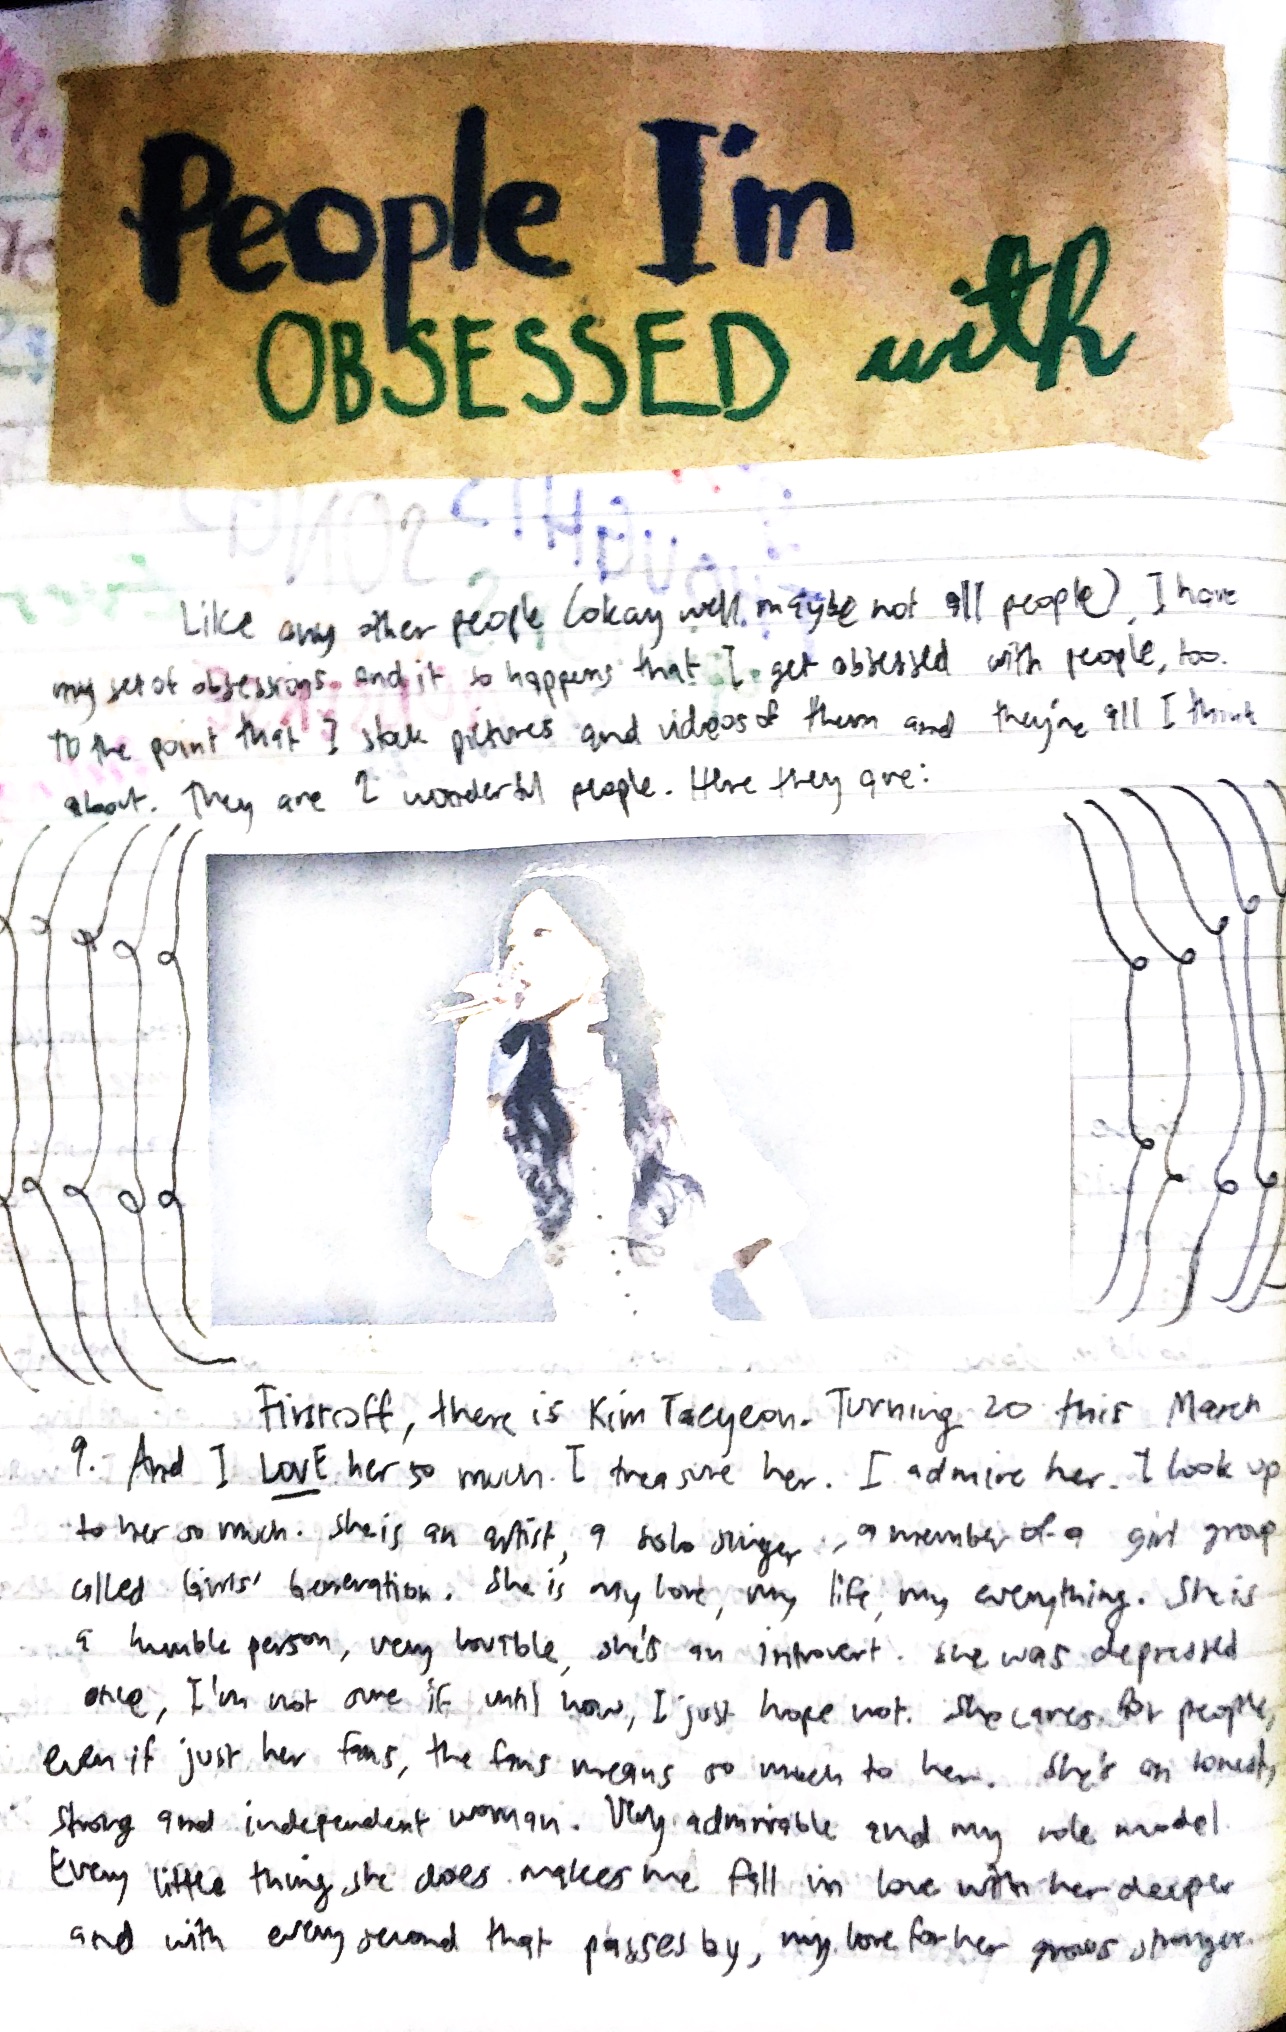 People I'm
OBSESSED with
Like any other people (okay well maybe not all people), I have
my set of obsessions and it so happens that I get obsessed with people, too.
To the point that I stalk pictures and videos of them and they're all I think
about. They are 2 wonderful people. Here they are:
First off, there is Kim Taeyeon. Turning 20 this March
9. And I LOVE her so much. I treasure her. I admire her. I look up
to her so much. She is an artist, a solo singer, a member of a girl group
called Girls' Generation. She is my love, my life, my everything. She is
a humble person, very lovible, she's an introvert. She was depressed
once, I'm not sure if until now, I just hope not. She cares for people,
even if just her fans, the fans means so much to her. She's an honest,
strong and independent woman. Very admirable and my role model.
Every little thing she does makes me fall in love with her deeper
and with every second that passes by, my love for her grows stronger.